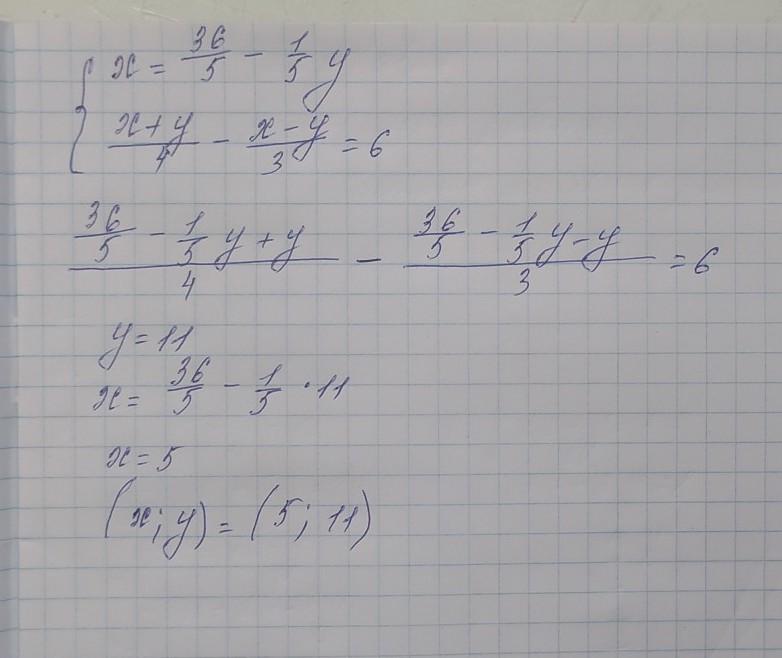 x = 36/5 - 1/5 y
(x+y)/4 - (x-y)/3 = 6
(36/5 - 1/5 y + y)/4 - (36/5 - 1/5 y - y)/3 = 6
y = 11
x = 36/5 - 1/5 · 11
x = 5
(x; y) = (5; 11)